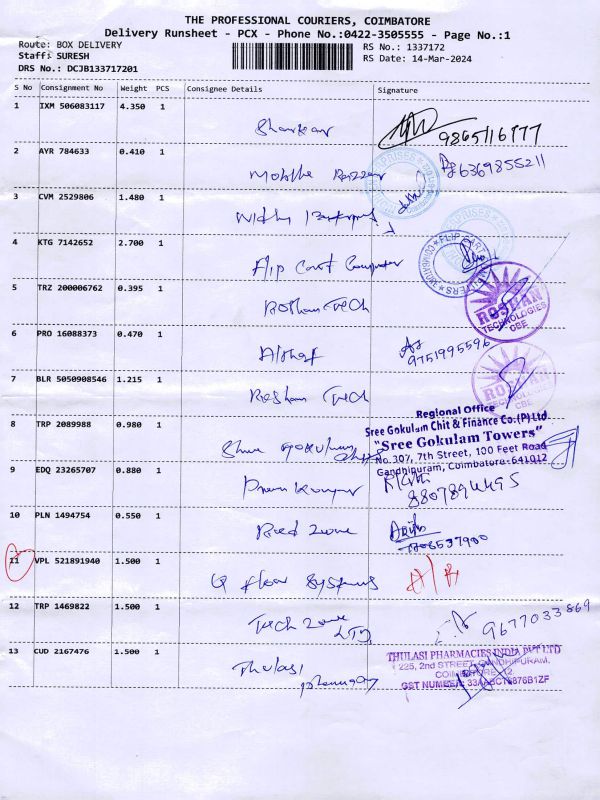 THE PROFESSIONAL COURIERS, COIMBATORE
Delivery Runsheet - PCX - Phone No.:0422-3505555 - Page No.:1
Route: BOX DELIVERY
RS No.: 1337172
Staff: SURESH
RS Date: 14-Mar-2024
DRS No.: DCJB133717201
S No Consignment No Weight PCS Consignee Details Signature
1 IXM 506083117 4.350 1
Shankar 9865116777
2 AYR 784633 0.410 1
Mobile Bazzar 6369855211
3 CVM 2529806 1.480 1
4 KTG 7142652 2.700 1
Flip Cart Computer
FLIP CART
5 TRZ 200006762 0.395 1
Roshan Tech
ROSHAN
TECHNOLOGIES
CBE
6 PRO 16088373 0.470 1
Althaf 9751995596
7 BLR 5050908546 1.215 1
Roshan Tech
ROSHAN
TECHNOLOGIES
CBE
8 TRP 2089988 0.980 1
Shree Gokulam
Regional Office
Sree Gokulam Chit & Finance Co.(P) Ltd.
"Sree Gokulam Towers"
No.307, 7th Street, 100 Feet Road
Gandhipuram, Coimbatore-641012
9 EDQ 23265707 0.880 1
Prem Kumar 8807894495
10 PLN 1494754 0.550 1
Bed Zone
11 VPL 521891940 1.500 1
Q Flow Systems
12 TRP 1469822 1.500 1
Tech Zone 9677033869
13 CUD 2167476 1.500 1
Thulasi
pharmacy
THULASI PHARMACIES INDIA PVT LTD
225, 2nd STREET, GANDHIPURAM,
COIMBATORE-12.